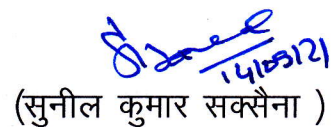 14/09/21
(सुनील कुमार सक्सैना )